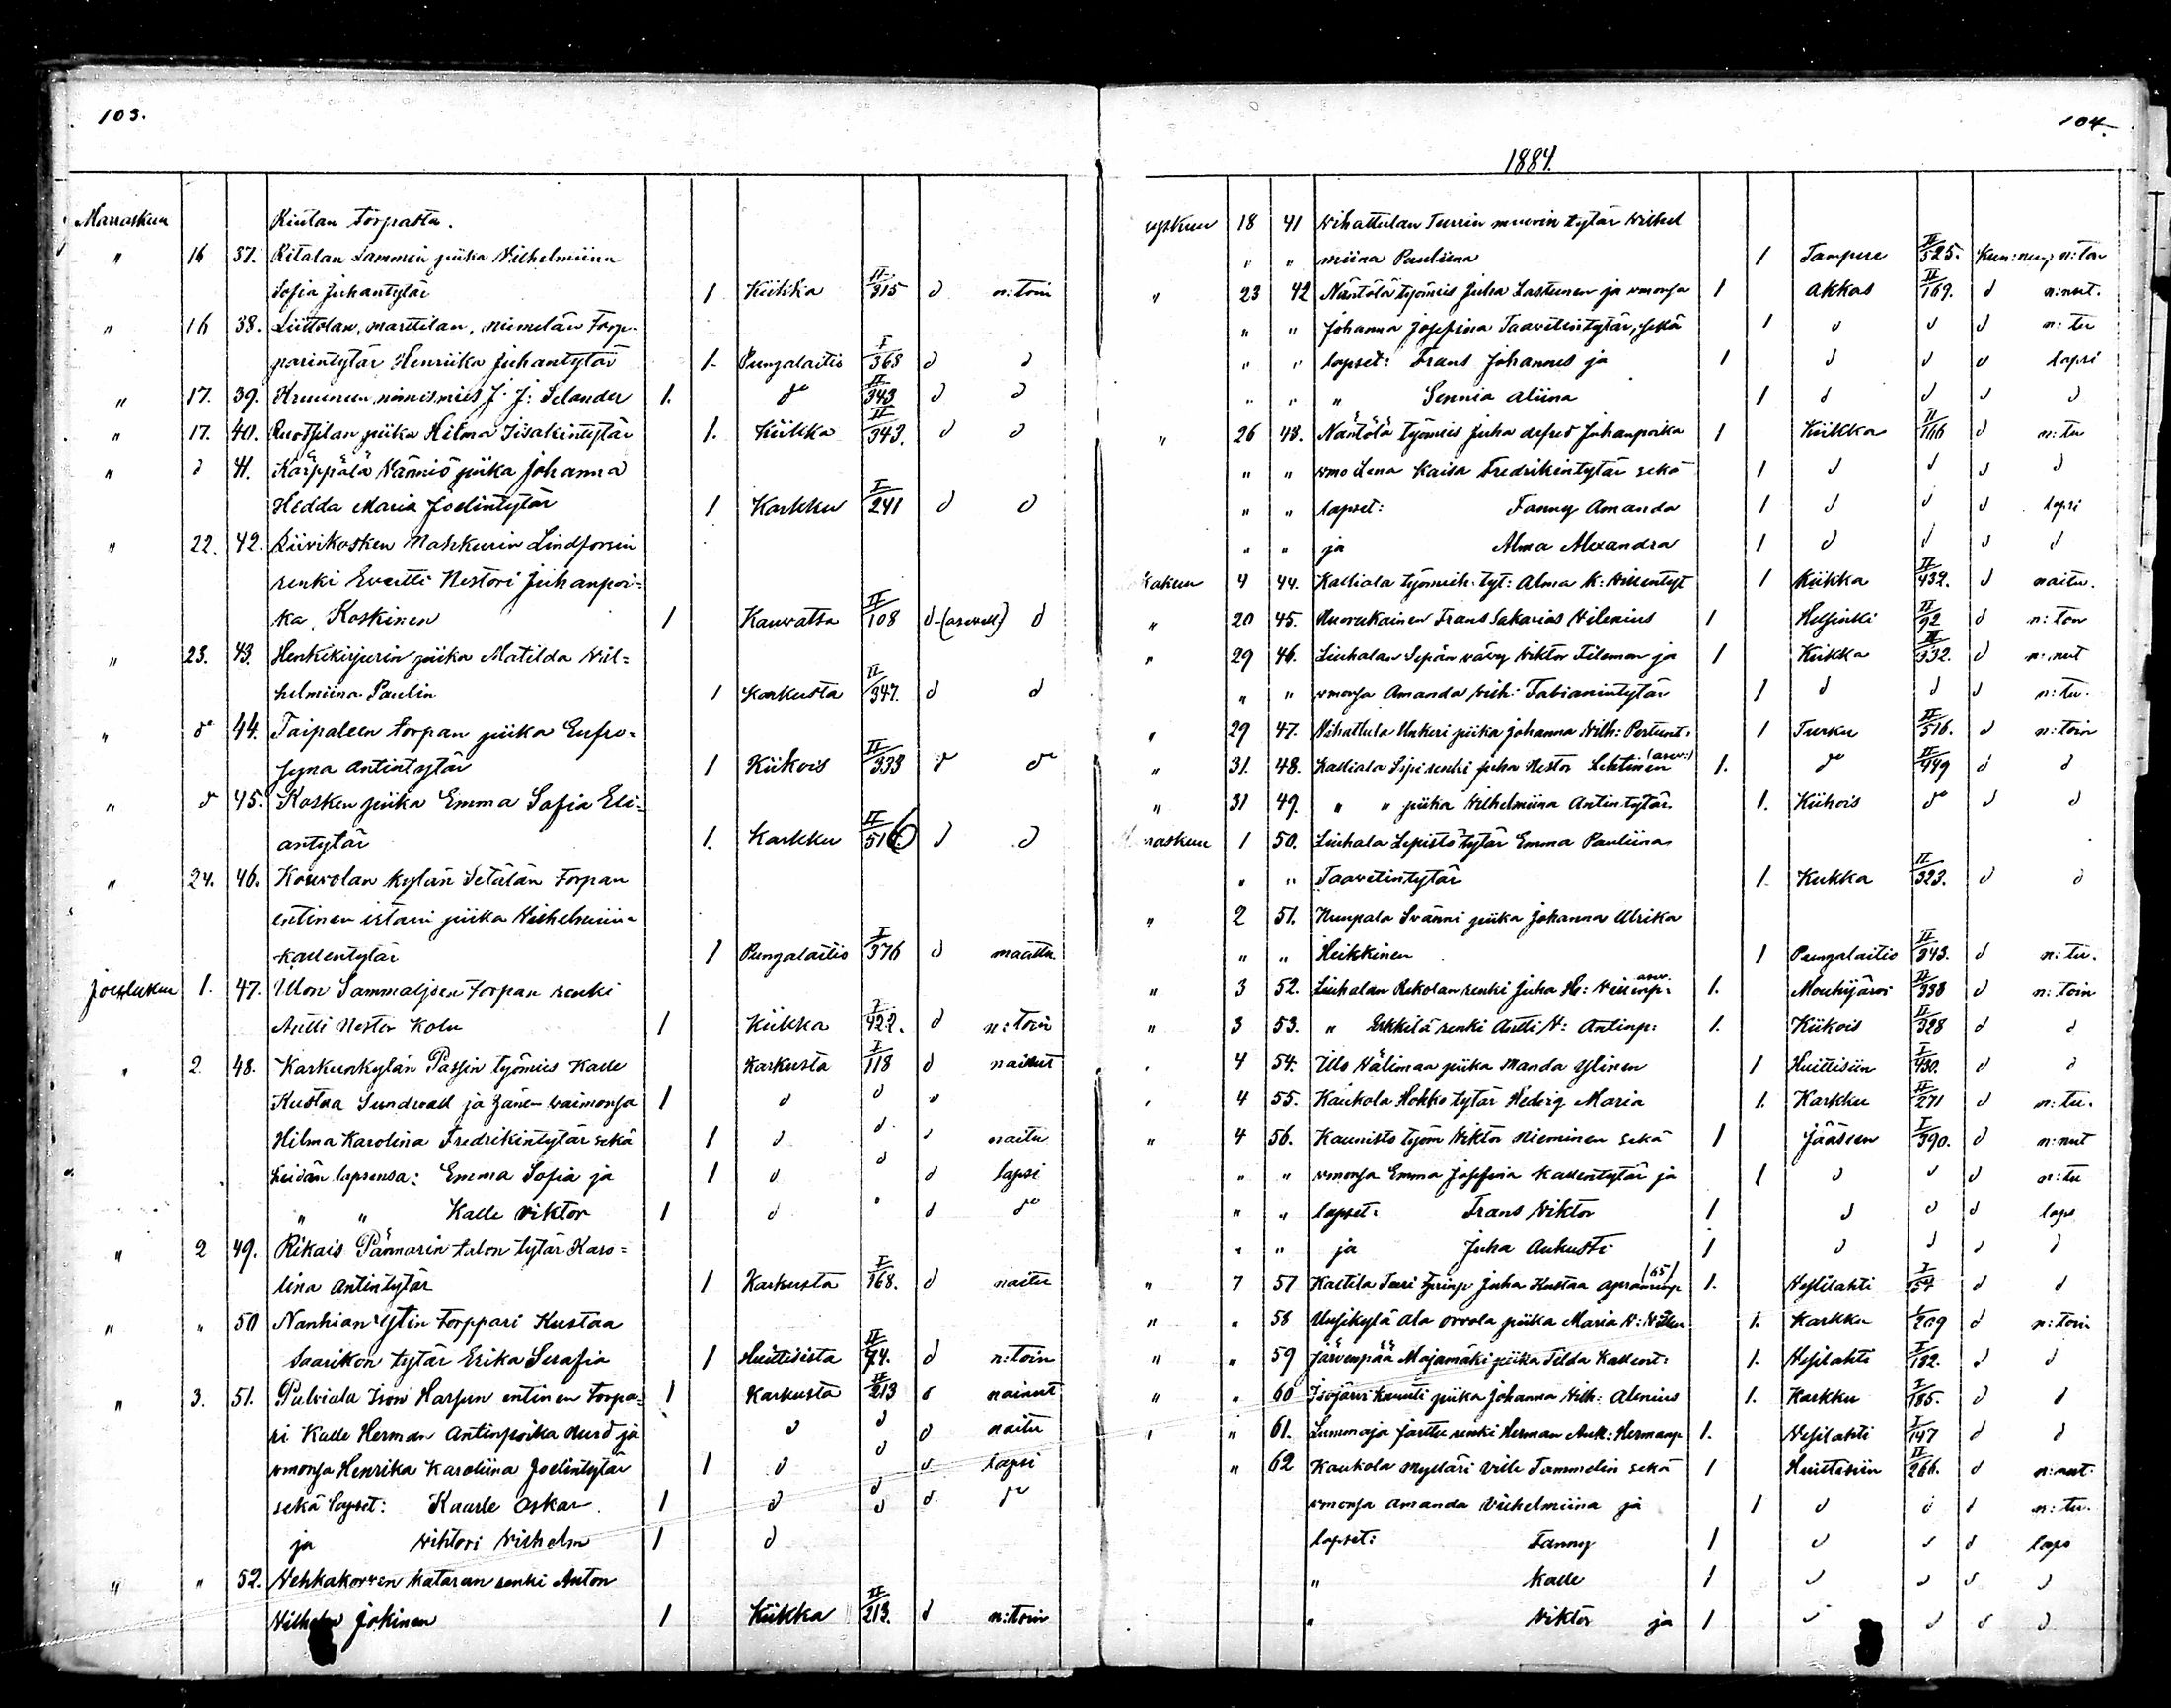 103.
Marraskuu Kiutan torpasta.
" 16 37. Ritalan Lammin piika Wilhelmiina
Sofia Juhantytär 1 Kiikka II/315 d n:toin
" 16 38. Liittolan, marttilan, niemelän Torp-
parintytär Henriika Juhantytär 1. Pungalaitio I/363 d d
" 17. 39. Kruunun nimismies J. J: Selander 1. do II/343 d d
" 17. 40. Ruotsilan piika Hilma Iisakintytär 1. Kiikka II/343. d d
" d 41. Karppälä Nänniö piika Johanna
Hedda Maria Joelintytär 1 Karkku I/241 d d
" 22. 42. Kiivikosken Nahkurin Lindforsin
renki Evertti Nestori Juhanpoi-
ka, Koskinen 1 Kauvatsa II/108 d d
" 23. 43. Henkikirjurin piika Matilda Wil-
helmiina Paulin 1 Karkusta II/347. d d
" d 44. Taipaleen torpan piika Eufro-
syna Antintytär 1 Kiikois II/333 d do
" d 45. Kosken piika Emma Sofia Eli-
antytär 1. Karkku II/516 d d
" 24. 46. Kouvolan kylän Setälän Torpan
entinen piika Wilhelmiina
Kallentytär 1 Pungalaitio I/376 d naittu
Joulukuu 1. 47. Ulon Sammaljoen Torpan renki
Antti Nestor Kolu 1 Kiikka I/422. d n:toin
" 2 48. Karkunkylän Passin työmies Kalle Karkusta I/118 d nainut
Kustaa Sundvall ja hänen vaimonsa 1 d d "
Hilma Karolina Fredrikintytär sekä 1 d d d naitu
heidän lapsensa: Emma Sofia ja 1 d d d lapsi
" " Kalle Viktor 1 d " d do
" 2 49. Rikais Pännärin talon tytär Karo-
lina Antintytär 1 Karkusta I/168. d naitu
" " 50 Nanhian Ylin torppari Kustaa
Saarikon tytär Erika Serafia 1 Huittisista II/74. d n:toin
" 3. 51. Pulviala Ison Harjun entinen Torpa- 1 Karkusta II/213 d nainut
ri Kalle Herman Antinpoika ja d d d naitu
vmonsa Henrika Karoliina Joelintytär 1 d d d lapsi
sekä lapset: Kaarle Oskar. 1 d d d. do
ja Viktori Vilhelm 1 d d
" " 52. Vehkakorven Kataran renki Anton
Vilhelm Jokinen 1 Kiikka II/213. d n:toin
104.
1884.
yskuu 18 41 Vihattulan Turrin muurin tytär Vilhel
" " miina Pauliina 1 Tampere II/525. n:ton
" 23 42 Näntölä työmies Juha Lastunen ja vmonsa 1 Akkas II/169. d n:nut.
" " Johanna Josefina Taavetintytär, sekä 1 d d d n:tu
" " lapset: Frans Johannes ja 1 d d d lapsi
" " " Sennia Aliina 1 d d d d
" 26 43. Näntölä työmies Juha Juhanpoika 1 Kiikka II/166 d n:tu
" " vmo Lena Kaisa Fredrikintytär sekä 1 d d d d
" " lapset: Fanny Amanda 1 d d d lapsi
" " ja Alma Alexandra 1 d d d d
kakuu 4 44. Kalliala työmieh: tyt: Alma K: Villentyt 1 Kiikka II/432. d naitu.
" 20 45. Nuorukainen Frans Sakarias Vilenius 1 Helsinki II/92 d n:ton
" 29 46. Liuhalan Sepän vävy Viktor Fileman ja 1 Kiikka II/332. d n:nut
" " vmonsa Amanda Vilh: Fabianintytär 1 d d d n:tu.
" 29 47. Vihattula Unkeri piika Johanna Vilh: 1 Turku II/516. d n:toin
" 31. 48. Kalliala Sipi renki Juha Nestor Lehtinen (arw:) 1. do II/449 d d
" 31 49. " " piika Vilhelmiina Antintytär 1. Kiikois do d d
raskuu 1 50. Liuhala Lepistö tytär Emma Pauliina
" " Taavetintytär 1. Kiikka II/323. d d
" 2 51. Nunpala Svänni piika Johanna Ulrika
" " Heikkinen 1 Pungalaitio II/343. d n:tu.
" 3 52. Liuhalan Rekolan renki Juha He: Villenp: arw. 1. Mouhijärvi II/338 d n:toin
" 3 53. " Erkkilä renki Antti V: Antinp: 1. Kiikois II/328 d d
" 4 54. Illo Välimaa piika Manda Ylinen 1 Huittisiin I/430. d d
" 4 55. Kaukola Hohko tytär Hedvig Maria 1. Karkku II/271 d n:tu.
" 4 56. Kaunisto työm Viktor Nieminen sekä 1 Jääseen I/390. d n:nut
" " vmonsa Emma Josefina Kallentytär ja 1 d d d n:tu
" " lapset: Frans Viktor 1 d d d laps
" " ja Juha Aukusti 1 d d d d
" 7 57 Kaltila Teeri Juha Kustaa (65) 1. Vesilahti I/54 d d
" " 58 Uusikylä Ala Orvola piika Maria V: 1. Karkku I/209 d n:toin
" " 59 Järvenpää Majamäki piika Tilda Kallent: 1. Vesilahti I/182. d d
" " 60 Isojärvi Kauuti piika Johanna Vilh: Alenius 1. Karkku I/185. d d
" " 61. Lummaja Jarttu renki Herman Auk: Hermanp 1. Vesilahti I/147 d d
" 62 Kaukola Mylläri Ville Tammelin sekä 1 Huittisiin II/266. d n:nut.
vmonsa Amanda Vilhelmiina ja 1 d d d n:tu.
lapset: Fanny 1 d d d laps
" Kalle 1 d d d d
" Viktor ja 1 d d d d